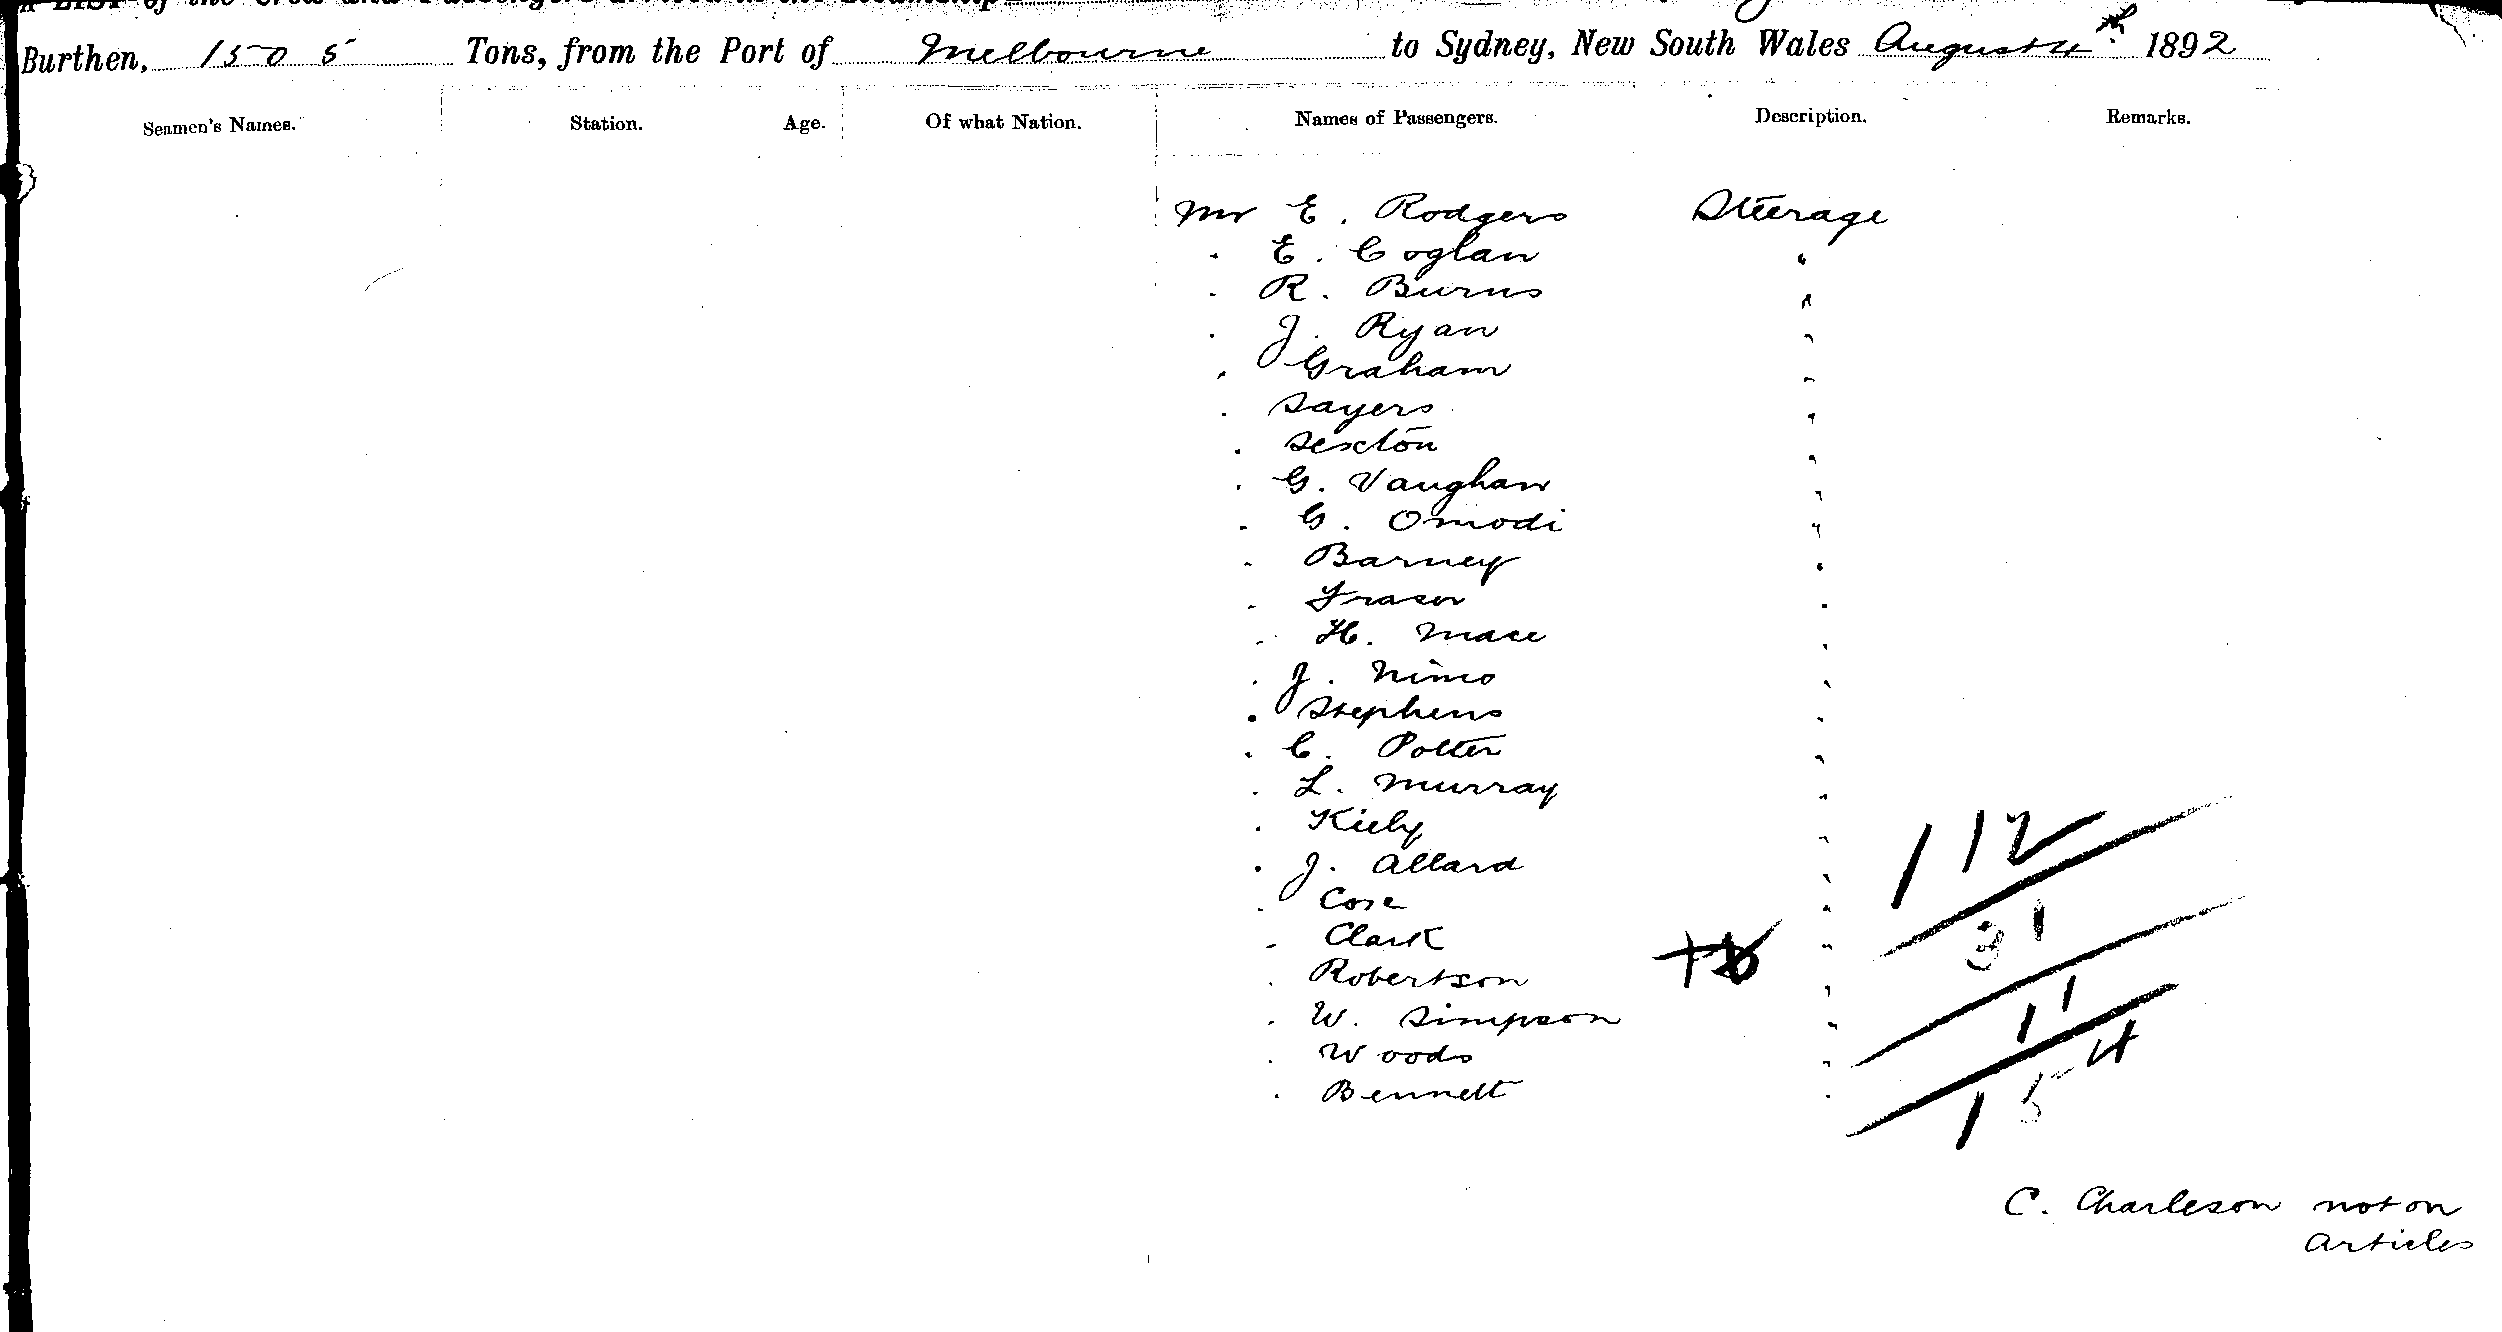 A LIST of the Crew and Passengers arrived in the Steamship
Burthen, 1505 Tons, from the Port of Melbourne to Sydney, New South Wales August 4th 1892
Seamen's Names. Station. Age. Of what Nation. Names of Passengers. Description. Remarks.
Mr E. Rodgers Steerage
" E. Coglan "
" R. Burns "
" J. Ryan "
" Graham "
" Sayers "
" Sexton "
" G. Vaughan "
" G. Omodi "
" Barney "
" Fraser "
" H. Mace "
" J. Nimo "
" Stephens "
" C. Potter "
" L. Murray "
" Kiely "
" J. Allard "
" Cose "
" Clark "
" Robertson "
" W. Simpson "
" Woods "
" Bennett "
112
31
11
154
C. Charleson not on
Articles